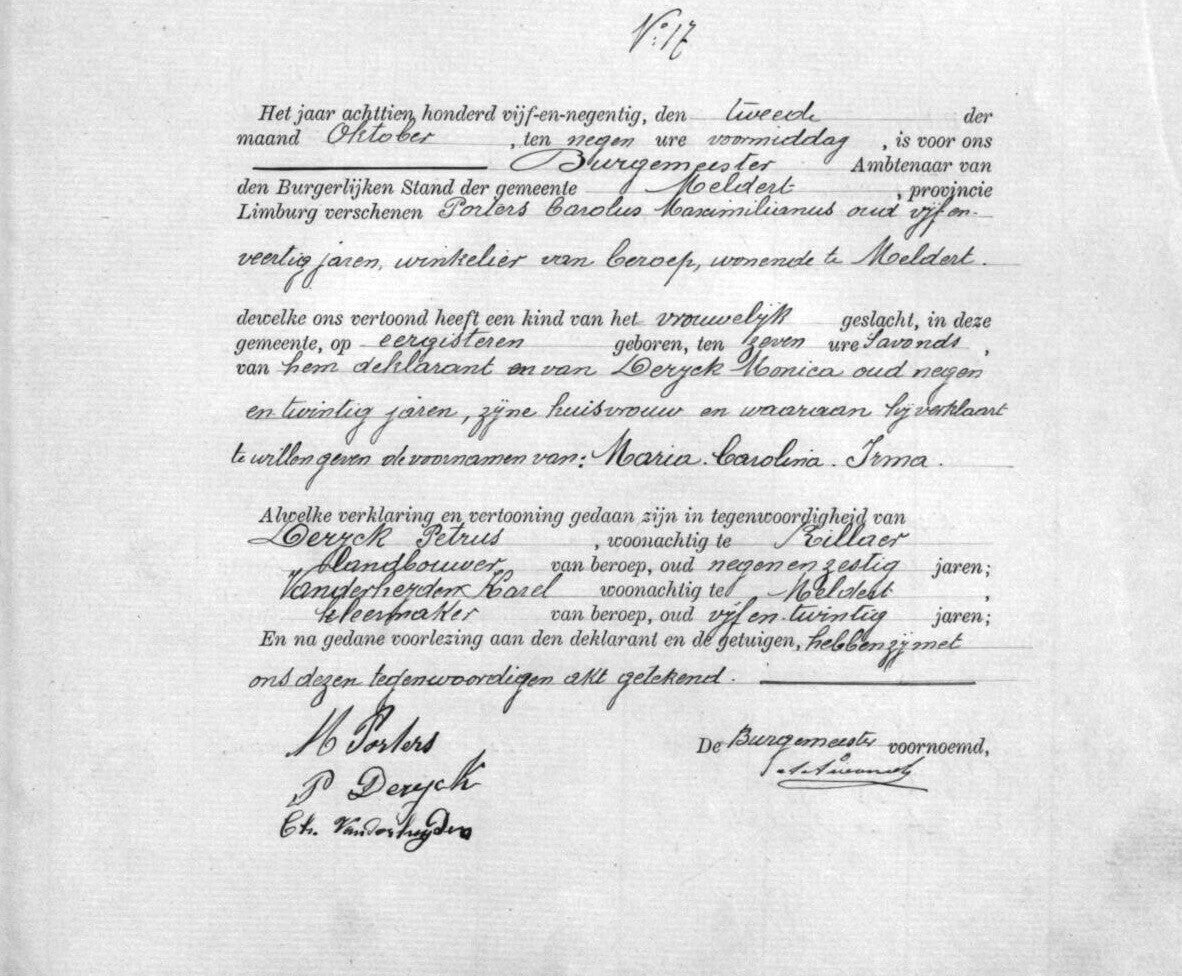 N.º 17
Het jaar achttien honderd vijf-en-negentig, den tweede der
maand Oktober, ten negen ure voormiddag, is voor ons
Burgemeester Ambtenaar van
den Burgerlijken Stand der gemeente Meldert, provincie
Limburg verschenen Porters Carolus Maximilianus oud vijf en
veertig jaren, winkelier van beroep, wonende te Meldert.
dewelke ons vertoond heeft een kind van het vrouwelijk geslacht, in deze
gemeente, op eergisteren geboren, ten zeven ure Savonds,
van hem deklarant en van Deryck Monica oud negen
en twintig jaren, zijne huisvrouw en waaraan hij verklaart
te willen geven de voornamen van: Maria. Carolina. Irma.
Alwelke verklaring en vertooning gedaan zijn in tegenwoordigheid van
Deryck Petrus, woonachtig te Rillaer
landbouwer van beroep, oud negen en zestig jaren;
Vanderheyden Karel woonachtig te Meldert,
kleermaker van beroep, oud vijf en twintig jaren;
En na gedane voorlezing aan den deklarant en de getuigen, hebben zij met
ons dezen tegenwoordigen akt getekend.
M Porters
De Burgemeester voornoemd,
P Deryck
Ch. Vanderheyden